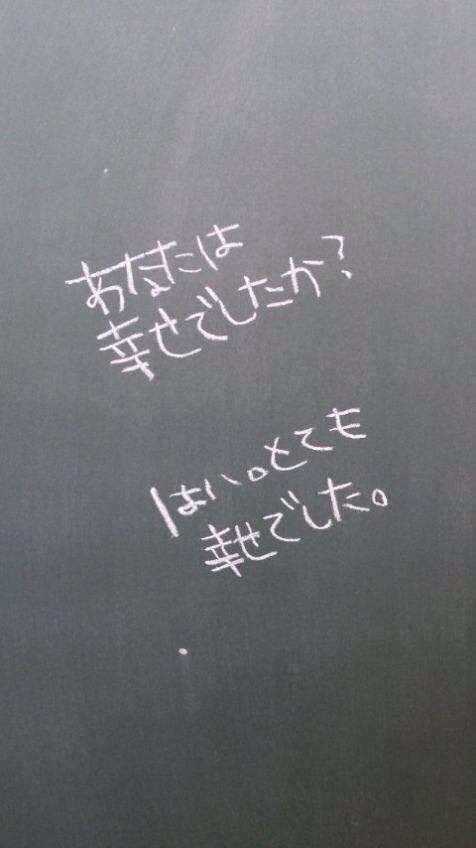 あなたは
幸せでしたか?
はい。とても
幸せでした。